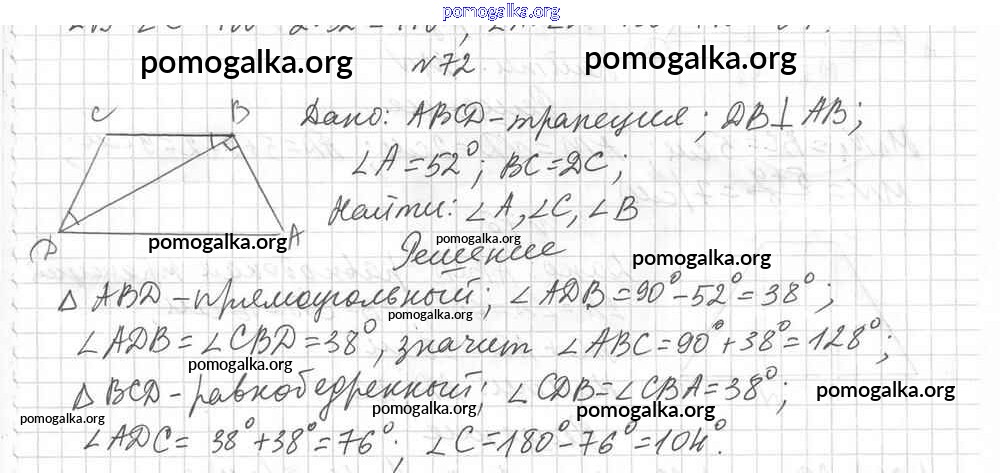 pomogalka.org
pomogalka.org
pomogalka.org
N 72
C B
Дано: ABCD-трапеция; DB⊥AB;
∠A=52°; BC=DC;
Найти: ∠A, ∠C, ∠B
D A
pomogalka.org
pomogalka.org
Решение
pomogalka.org
△ ABD-прямоугольный; ∠ADB=90°-52°=38°;
pomogalka.org
∠ADB=∠CBD=38°, значит ∠ABC=90°+38°=128°;
pomogalka.org
△ BCD-равнобедренный; ∠CDB=∠CBA=38°;
pomogalka.org
pomogalka.org
pomogalka.org
pomogalka.org
∠ADC= 38°+38°=76°; ∠C=180°-76°=104°.